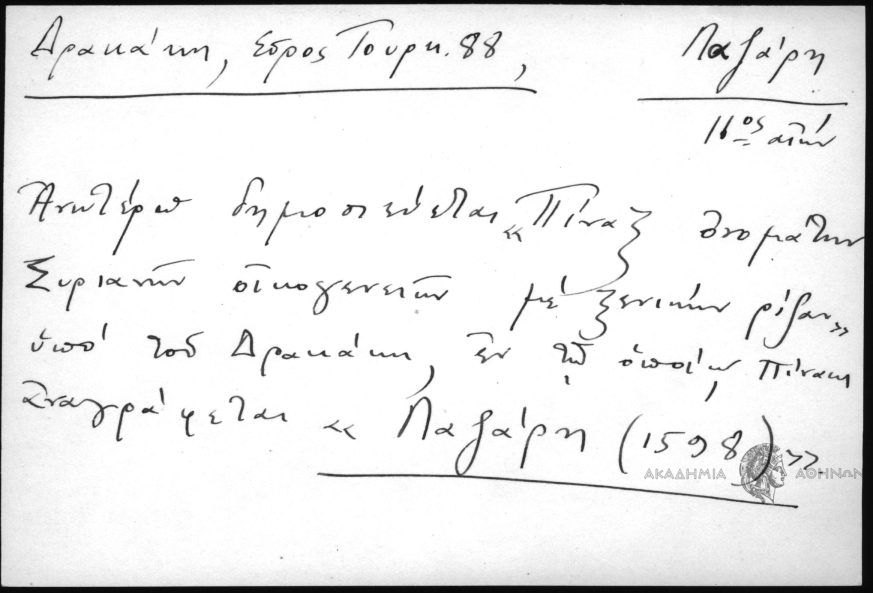 Δρακάκη, Σύρος Τουρκ. 88, Λαζάρη
16ος αἰών
Ἀνωτέρω δημοσιεύεται «Πίναξ ὀνομάτων
Συριανῶν οἰκογενειῶν μέ ξενικήν ρίζαν»
ὑπό τοῦ Δρακάκη, ἐν τῷ ὁποίῳ πίνακι
ἀναγράφεται «Λαζάρη (1598)»
ΑΚΑΔΗΜΙΑ ΑΘΗΝΩΝ